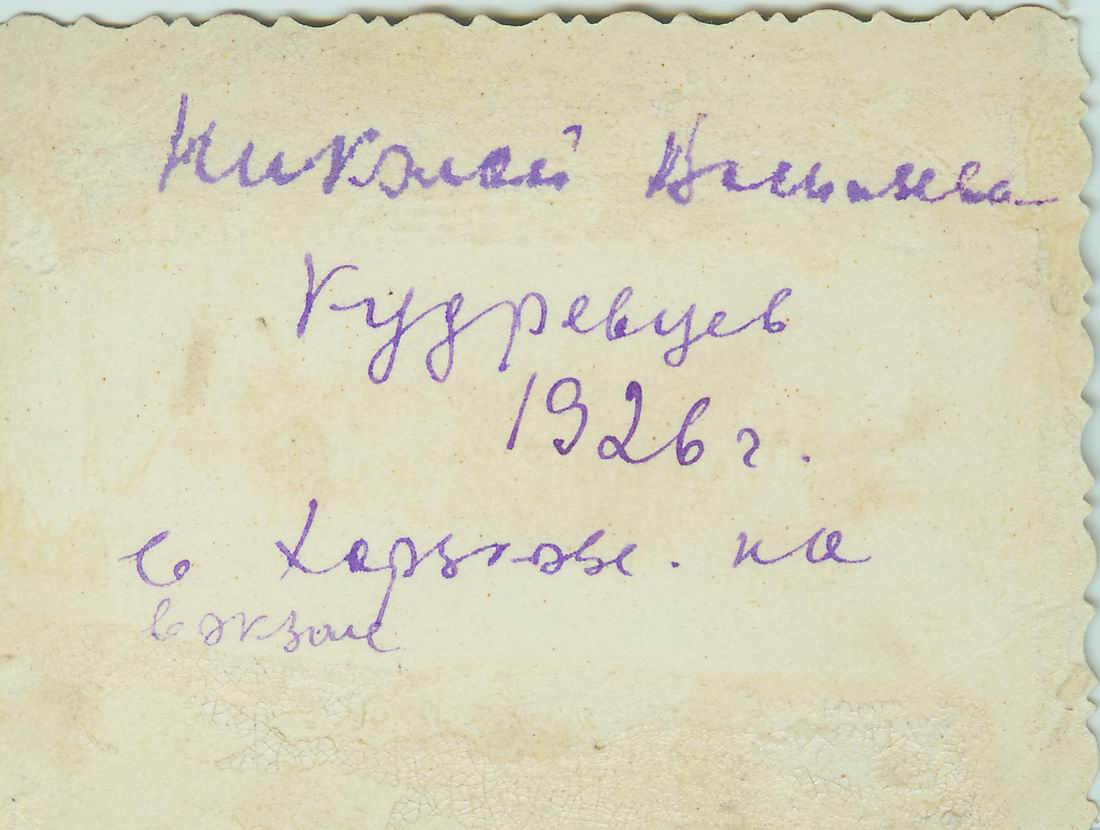 Николай Василева
Кудревцев
1926 г.
в Харькове. на
вокзале